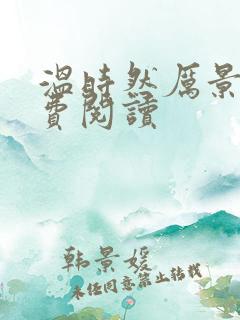 溫時然厲景
費閱讀
韩景媛
未经同意禁止转载